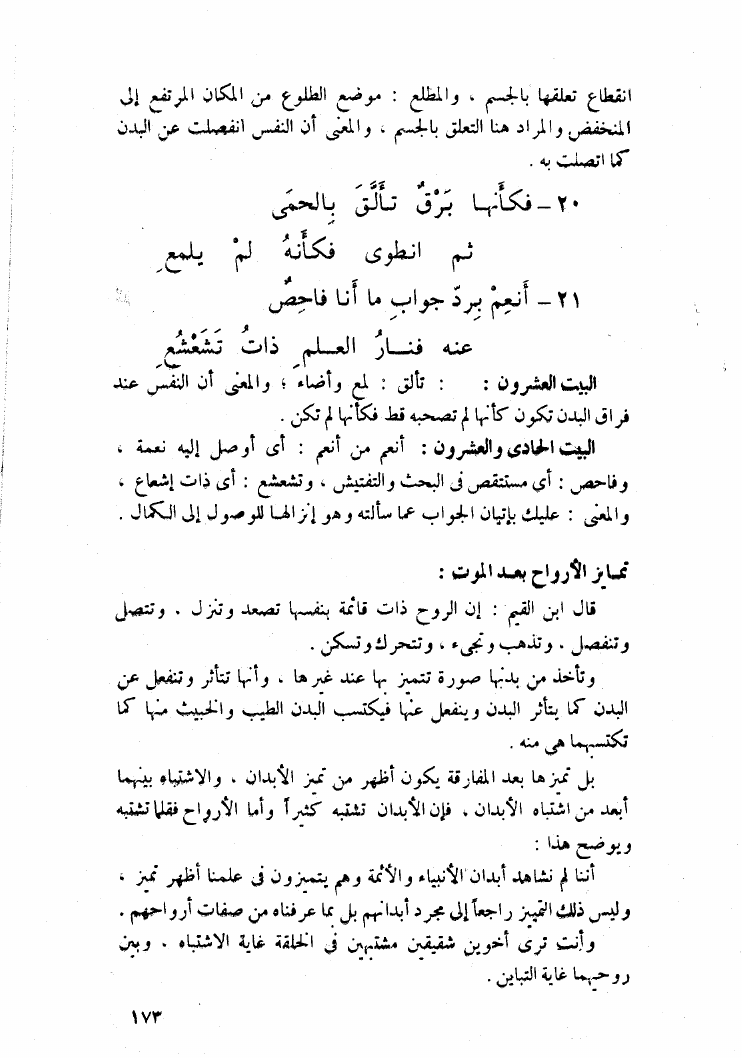 انقطاع تعلقها بالجسم ، والمطلع : موضع الطلوع من المكان المرتفع إلى
المنخفض والمراد هنا التعلق بالجسم ، والمعنى أن النفس انفصلت عن البدن
كما اتصلت به .
٢٠ – فكأَنها بَرْقٌ تأَلَّقَ بِالحمَى
ثم انطوى فكأَنهُ لمْ يلمع ِ
٢١ – أَنعِمْ بِردّ جوابِ ما أَنا فاحِصٌ
عنه فنـارُ العـلمِ ذاتُ تَشَعْشُعِ
البيت العشرون : : تألق : لمع وأضاء ؛ والمعنى أن النفس عند
فراق البدن تكون كأنها لم تصحبه قط فكأنها لم تكن .
البيت الحادى والعشرون : أنعم من أنعم : أى أوصل إليه نعمة ،
وفاحص : أى مستنقص فى البحث والتفتيش ، وتشعشع : أى ذات إشعاع ،
والمعنى : عليك بإتيان الجواب عما سألته وهو إنزالهـا للوصول إلى الكمال .
تمـايز الأرواح بعـد الموت :
قال ابن القيم : إن الروح ذات قائمة بنفسها تصعد وتنزل . وتتصل
وتنفصل . وتذهب وتجىء ، وتتحرك وتسكن .
وتأخذ من بدنها صورة تتميز بها عند غيرها ، وأنها تتأثر وتنفعل عن
البدن كما يتأثر البدن وينفعل عنها فيكتسب البدن الطيب والخبيث منها كما
تكتسبهما هى منه .
بل تميزها بعد المفارقة يكون أظهر من تميز الأبدان ، والاشتباه بينهما
أبعد من اشتباه الأبدان ، فإن الأبدان تشتبه كثيراً وأما الأرواح فقلما تشتبه
ويوضح هذا :
أننا لم نشاهد أبدان الأنبياء والأئمة وهم يتميزون فى علمنا أظهر تميز ،
وليس ذلك التمييز راجعاً إلى مجرد أبدانهم بل بما عرفناه من صفات أرواحهم .
وأنت ترى أخوين شقيقين مشتبهين فى الخلقة غاية الاشتباه ، وبين
روحيهما غاية التباين .
١٧٣